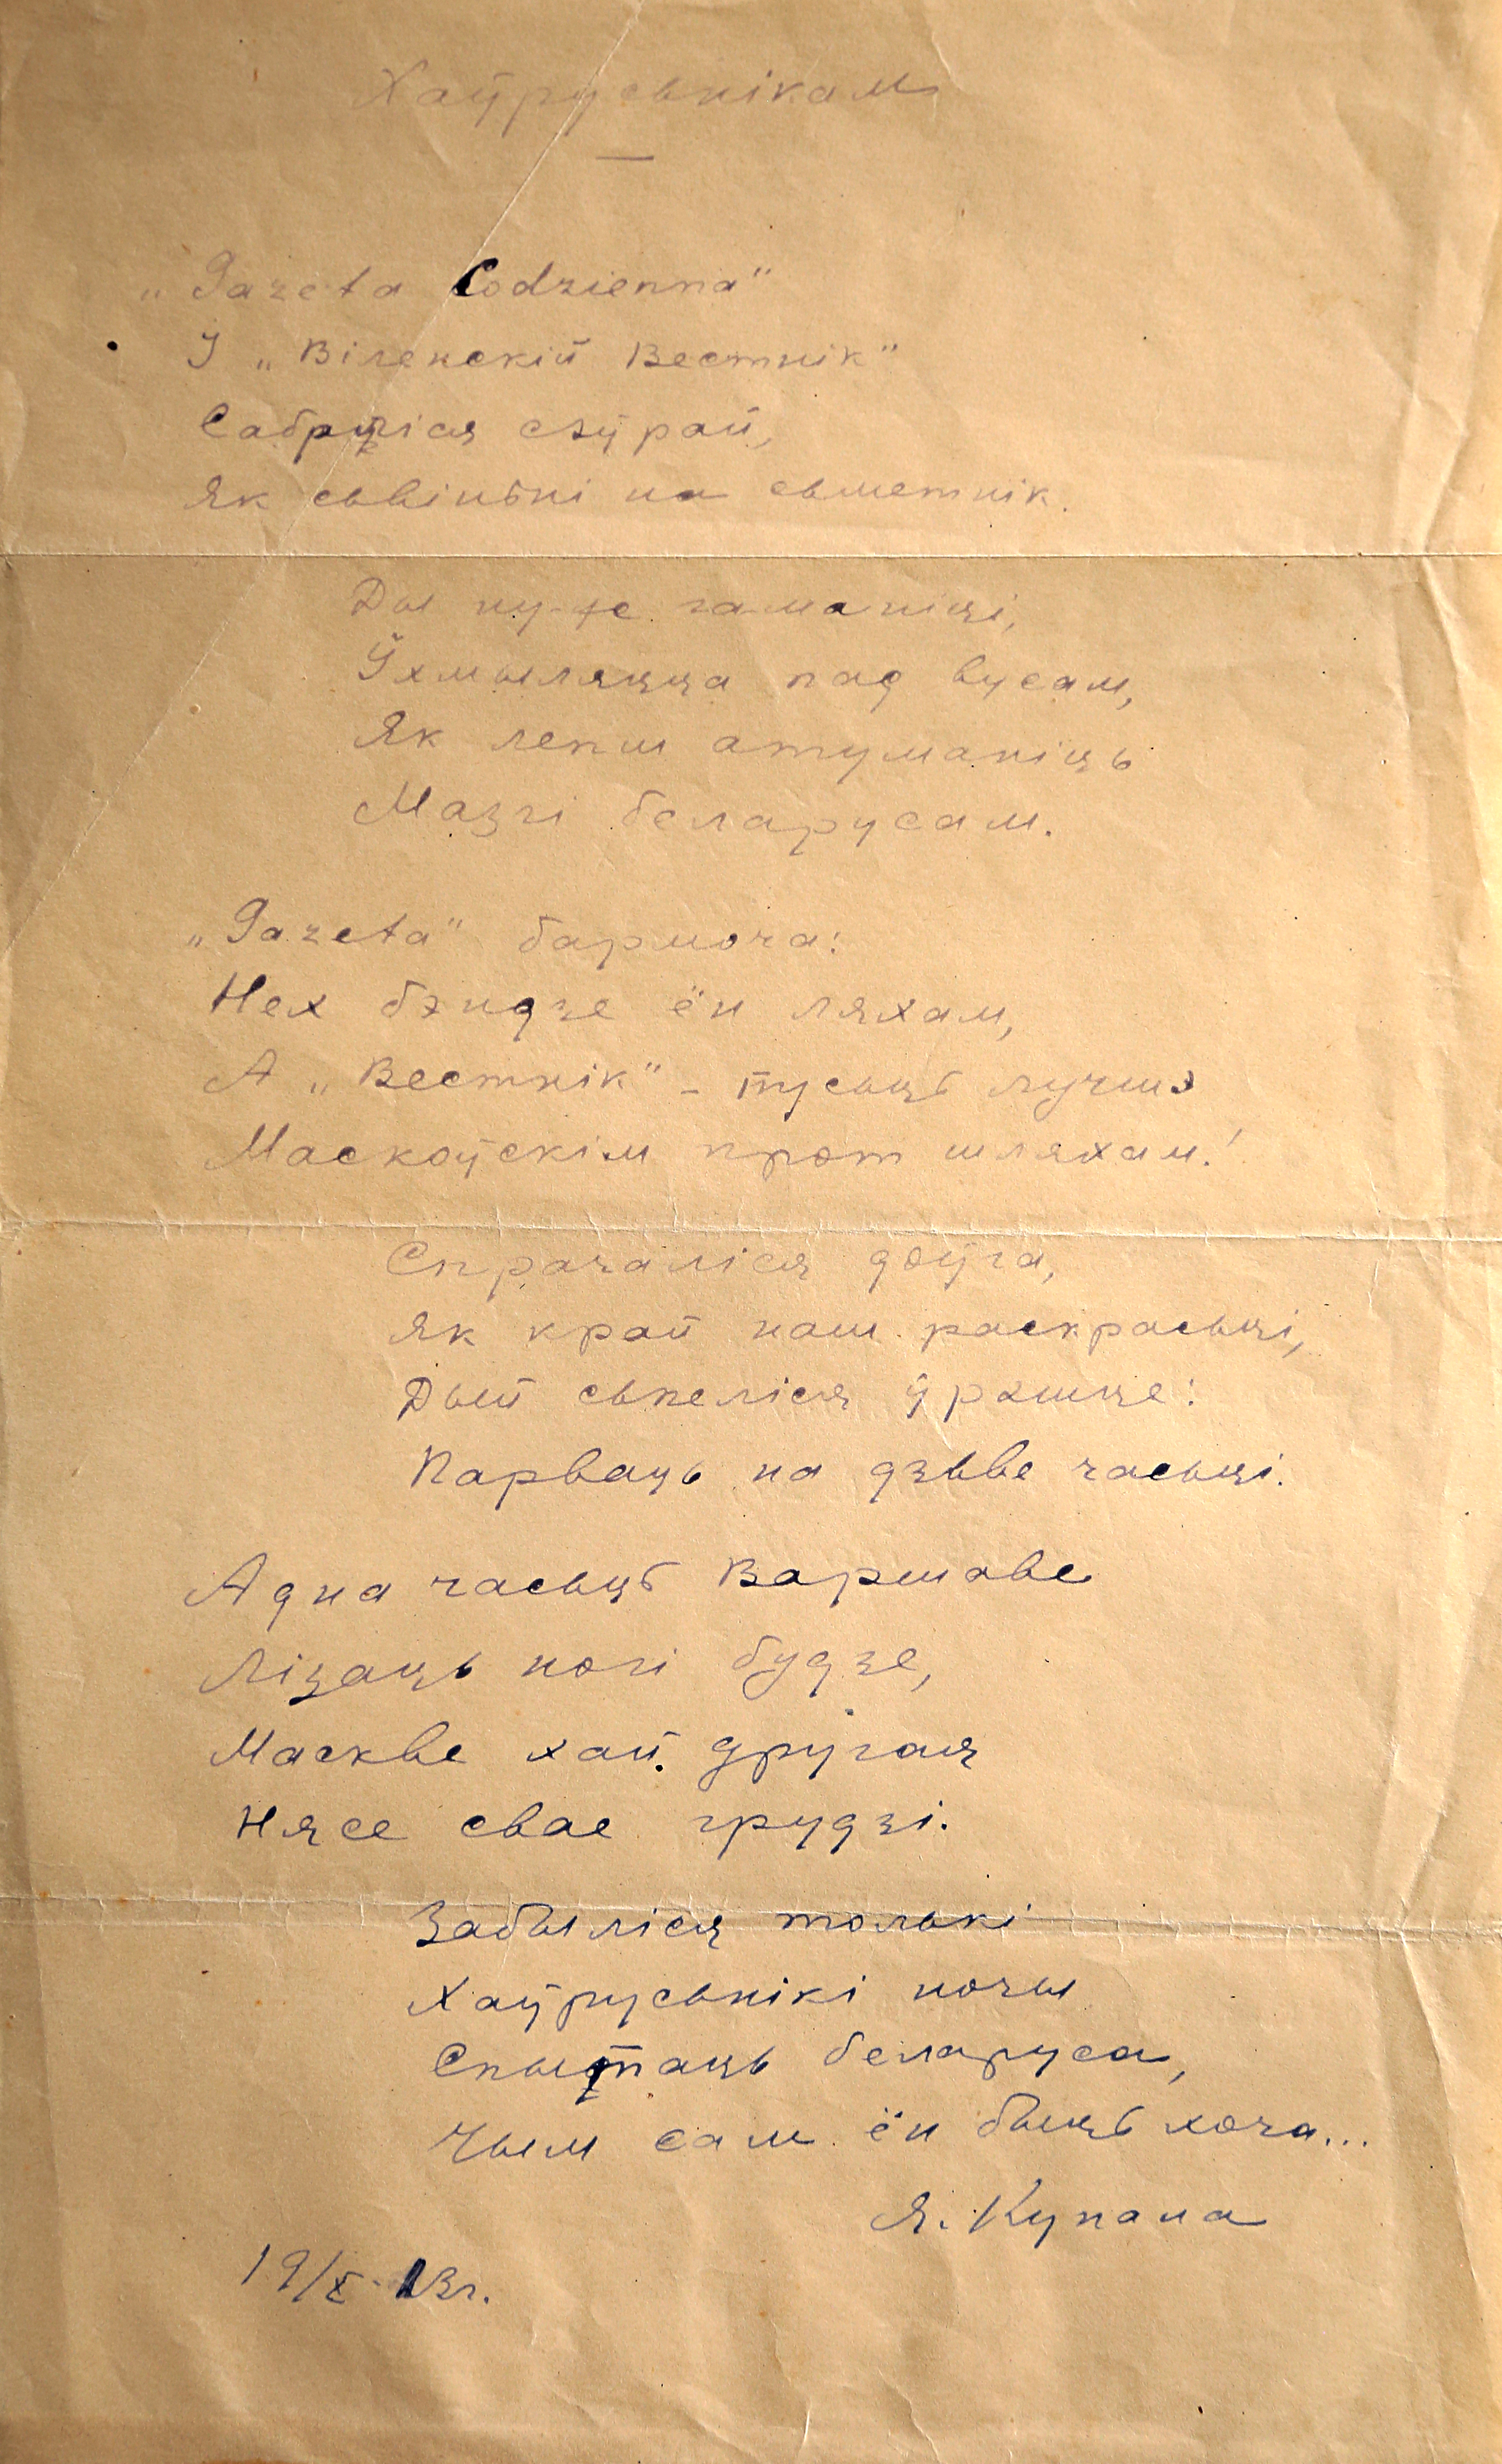 Хаўрусьнікам
„Gazeta Codzienna"
І „Віленскій Вестнік"
Сабраліся сяўрай,
Як сьвіньні на сьметнік.
Ды ну-це гаманіці,
Ўхмыляцца пад вусам,
Як лепш атуманіць
Мазгі беларусам.
„Gazeta" бармоча:
Нех бэндзе ён ляхам,
А „Вестнік" – пусьць лучшэ
Маскоўскім прот шляхам!
Спрачаліся доўга,
Як край наш раскрасьці,
Дый сьпеліся ўрэшце:
Парваць на дзьве часьці.
Адна часьць Варшаве
Лізаць ногі будзе,
Маскве хай другая
Нясе свае грудзі.
Забыліся толькі
Хаўрусьнікі ночы
Спытаць беларуса,
Чым сам ён быць хоча...
Я. Купала
19/X-13г.